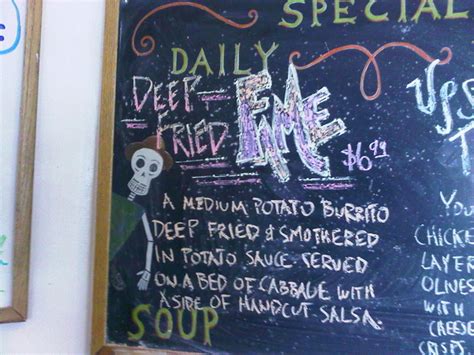 SPECIAL
DAILY
DEEP-
FRIED
$6.99
A MEDIUM POTATO BURRITO
DEEP FRIED & SMOTHERED
IN POTATO SAUCE SERVED
ON A BED OF CABBAGE WITH
A SIDE OF HANDCUT SALSA.
SOUP
YOU
CHICKE
LAYER
WITH
CHEESE